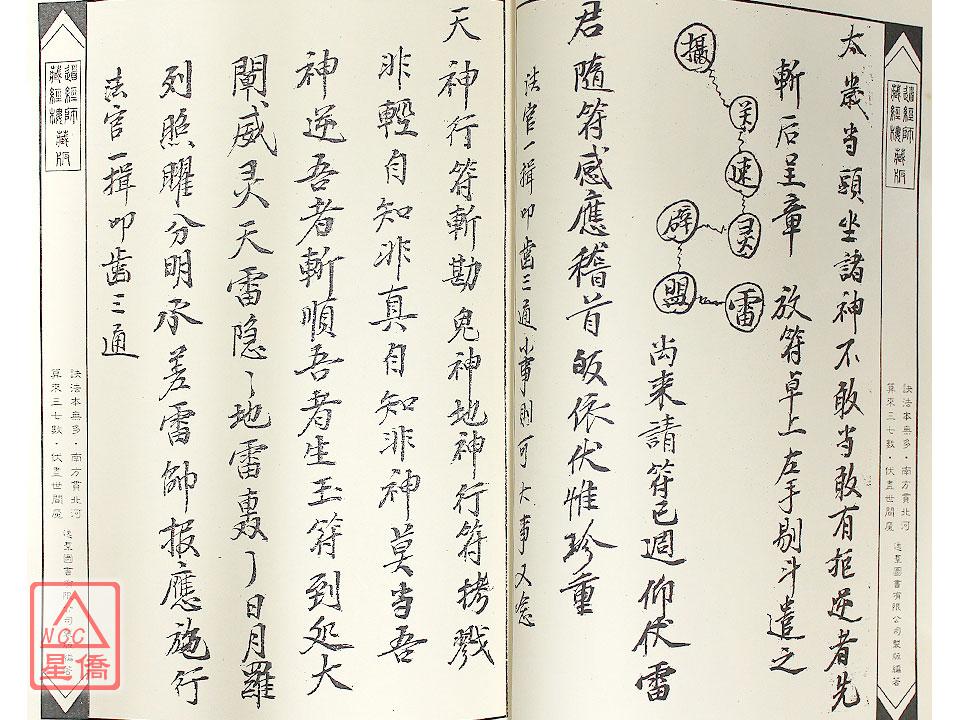 太歲当頭坐諸神不敢当敢有拒逆者先
斬后呈章　放符卓上左手剔斗遣之
攝
速
灵
辟
雷
盟
尚来請符已週仰伏雷
君隨符感應稽首皈依伏惟珍重
法官一揖叩齒三通小事則可大事又念
天神行符斬勘鬼神地神行符拷戮
非輕自知非真自知非神莫当吾
神逆吾者斬順吾者生玉符到処大
闡威灵天雷隐〻地雷轟〻日月羅
列照耀分明承差雷帥报應施行
法官一揖叩齒三通
道經師
藏經樓
藏版
訣法本無多・南方貫北河
算來三七數・伏盡世間魔
逸群圖書有限公司製版編答
道經師
藏經樓
藏版
訣法本無多・南方貫北河
算來三七數・伏盡世間魔
NCC
星僑